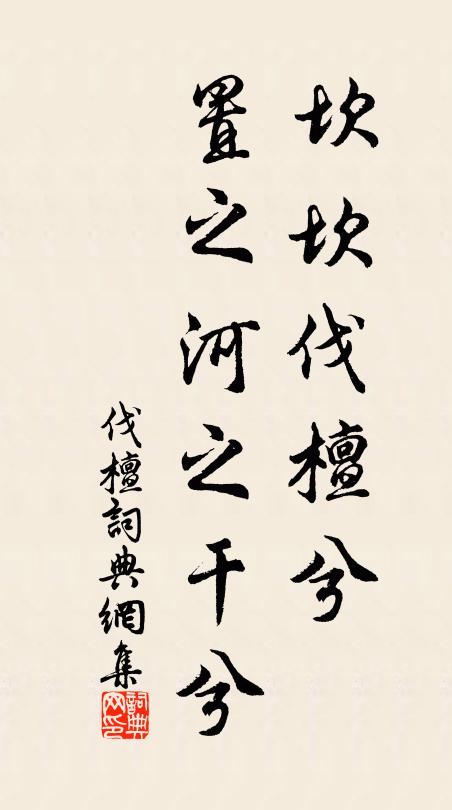 坎坎伐檀兮
置之河之干兮
伐檀詞典網集
詞典
网印